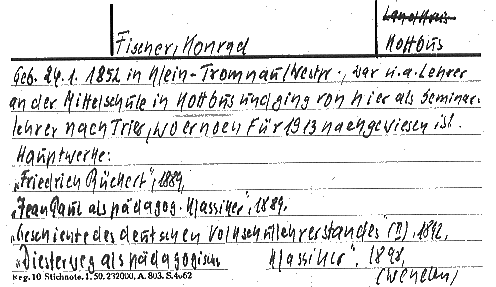 Fischer, Konrad
Kottbus
Geb. 24.1.1852 in Klein-Tromnau/Westpr., war u.a. Lehrer
an der Mittelschule in Kottbus und ging von hier als Seminar-
lehrer nach Trier, wo er noch für 1913 nachgewiesen ist.
Hauptwerke:
„Friedrich Rückert", 1889,
„Jean Paul als pädagog. Klassiker", 1889,
„Geschichte des deutschen Volksschullehrerstandes" (II), 1892,
„Diesterweg als pädagogischer Klassiker", 1898,
Reg. 10 Stichnote. 1. 50. 232000. A. 803. S. 4.62 (Wenden)